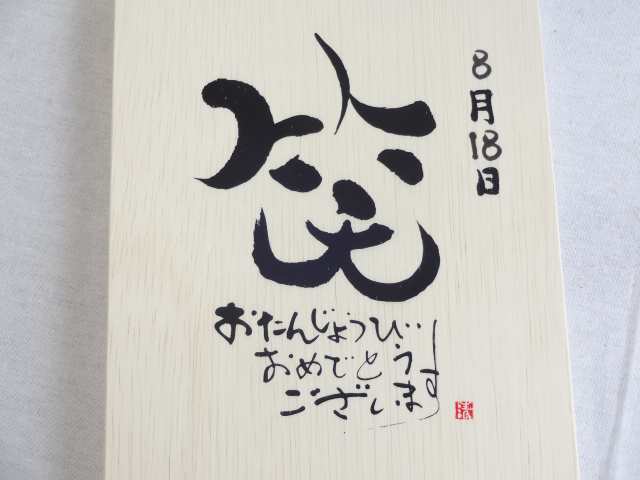 8月18日
笑
おたんじょうび
おめでとう
ございます